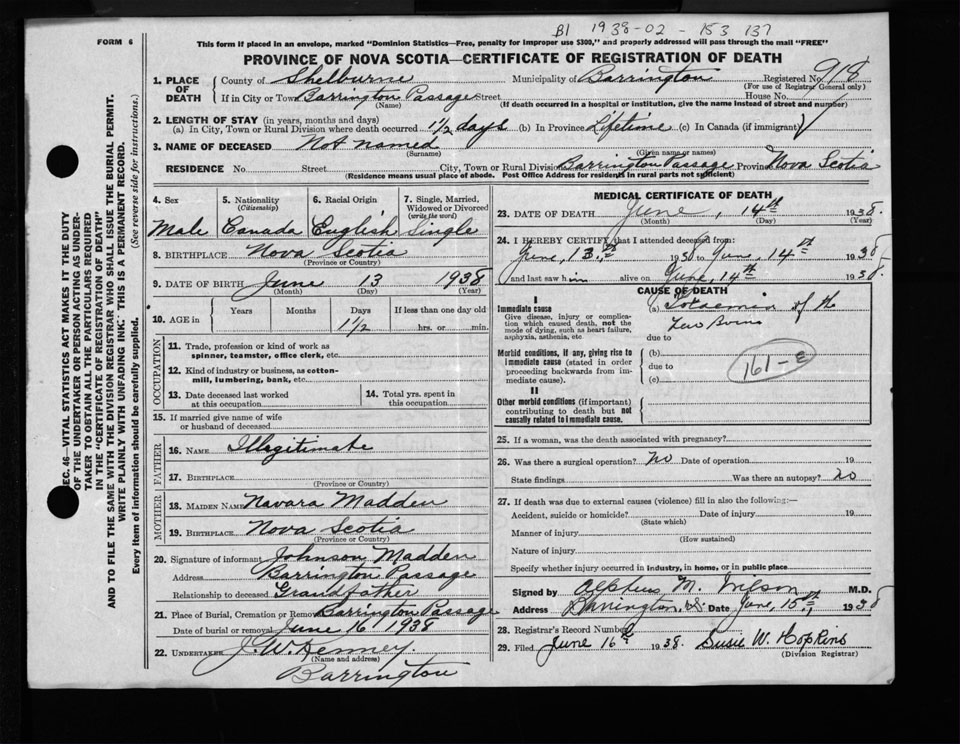 B1 1938-02 - 153 137
FORM 6
This form if placed in an envelope, marked "Dominion Statistics—Free, penalty for improper use $300," and properly addressed will pass through the mail "FREE"
PROVINCE OF NOVA SCOTIA—CERTIFICATE OF REGISTRATION OF DEATH
1. PLACE OF DEATH
County of Shelburne Municipality of Barrington Registered No. 918
(For use of Registrar General only)
If in City or Town Barrington Passage Street House No.
(Name) (If death occurred in a hospital or institution, give the name instead of street and number)
2. LENGTH OF STAY (in years, months and days)
(a) In City, Town or Rural Division where death occurred 1 1/2 days (b) In Province Lifetime (c) In Canada (if immigrant)
3. NAME OF DECEASED Not named
(Surname) (Given name or names)
RESIDENCE No. Street City, Town or Rural Division Barrington Passage Province Nova Scotia
(Residence means usual place of abode. Post Office Address for residents in rural parts not sufficient)
4. Sex Male
5. Nationality (Citizenship) Canada
6. Racial Origin English
7. Single, Married, Widowed or Divorced (write the word) Single
8. BIRTHPLACE Nova Scotia
(Province or Country)
9. DATE OF BIRTH June 13 1938
(Month) (Day) (Year)
10. AGE in Years Months Days If less than one day old
1 1/2 hrs. or min.
OCCUPATION
11. Trade, profession or kind of work as spinner, teamster, office clerk, etc.
12. Kind of industry or business, as cotton-mill, lumbering, bank, etc.
13. Date deceased last worked at this occupation
14. Total yrs. spent in this occupation
15. If married give name of wife or husband of deceased
FATHER
16. NAME Illegitimate
17. BIRTHPLACE
(Province or Country)
MOTHER
18. MAIDEN NAME Navara Madden
19. BIRTHPLACE Nova Scotia
(Province or Country)
20. Signature of informant Johnson Madden
Address Barrington Passage
Relationship to deceased Grandfather
21. Place of Burial, Cremation or Removal Barrington Passage
Date of burial or removal June 16 1938
22. UNDERTAKER J. W. Kenney
(Name and address)
Barrington
MEDICAL CERTIFICATE OF DEATH
23. DATE OF DEATH June, 14th 1938.
(Month) (Day) (Year)
24. I HEREBY CERTIFY that I attended deceased from:
June, 13th 1938 to June, 14th 1938
and last saw him alive on June, 14th 1938.
CAUSE OF DEATH
I
Immediate cause
Give disease, injury or complication which caused death, not the mode of dying, such as heart failure, asphyxia, asthenia, etc
(a) Toxaemia of the
New Born
due to
Morbid conditions, if any, giving rise to immediate cause (stated in order proceeding backwards from immediate cause).
(b)
due to
(c)
161-e
II
Other morbid conditions (if important) contributing to death but not causally related to immediate cause.
25. If a woman, was the death associated with pregnancy?
26. Was there a surgical operation? no Date of operation 19
State findings Was there an autopsy? no
27. If death was due to external causes (violence) fill in also the following:—
Accident, suicide or homicide? Date of injury 19
(State which)
Manner of injury
(How sustained)
Nature of injury
Specify whether injury occurred in industry, in home, or in public place
Signed by Alpheus M. Wilson M.D.
Address Barrington, N.S. Date June, 15th, 1938
28. Registrar's Record Number
29. Filed June 16th 1938. Susie W. Hopkins
(Division Registrar)
SEC. 46—VITAL STATISTICS ACT MAKES IT THE DUTY
OF THE UNDERTAKER OR PERSON ACTING AS UNDER-
TAKER TO OBTAIN ALL THE PARTICULARS REQUIRED
IN THE "CERTIFICATE OF REGISTRATION OF DEATH"
AND TO FILE THE SAME WITH THE DIVISION REGISTRAR WHO SHALL ISSUE THE BURIAL PERMIT.
WRITE PLAINLY WITH UNFADING INK. THIS IS A PERMANENT RECORD.
Every item of information should be carefully supplied. (See reverse side for instructions.)